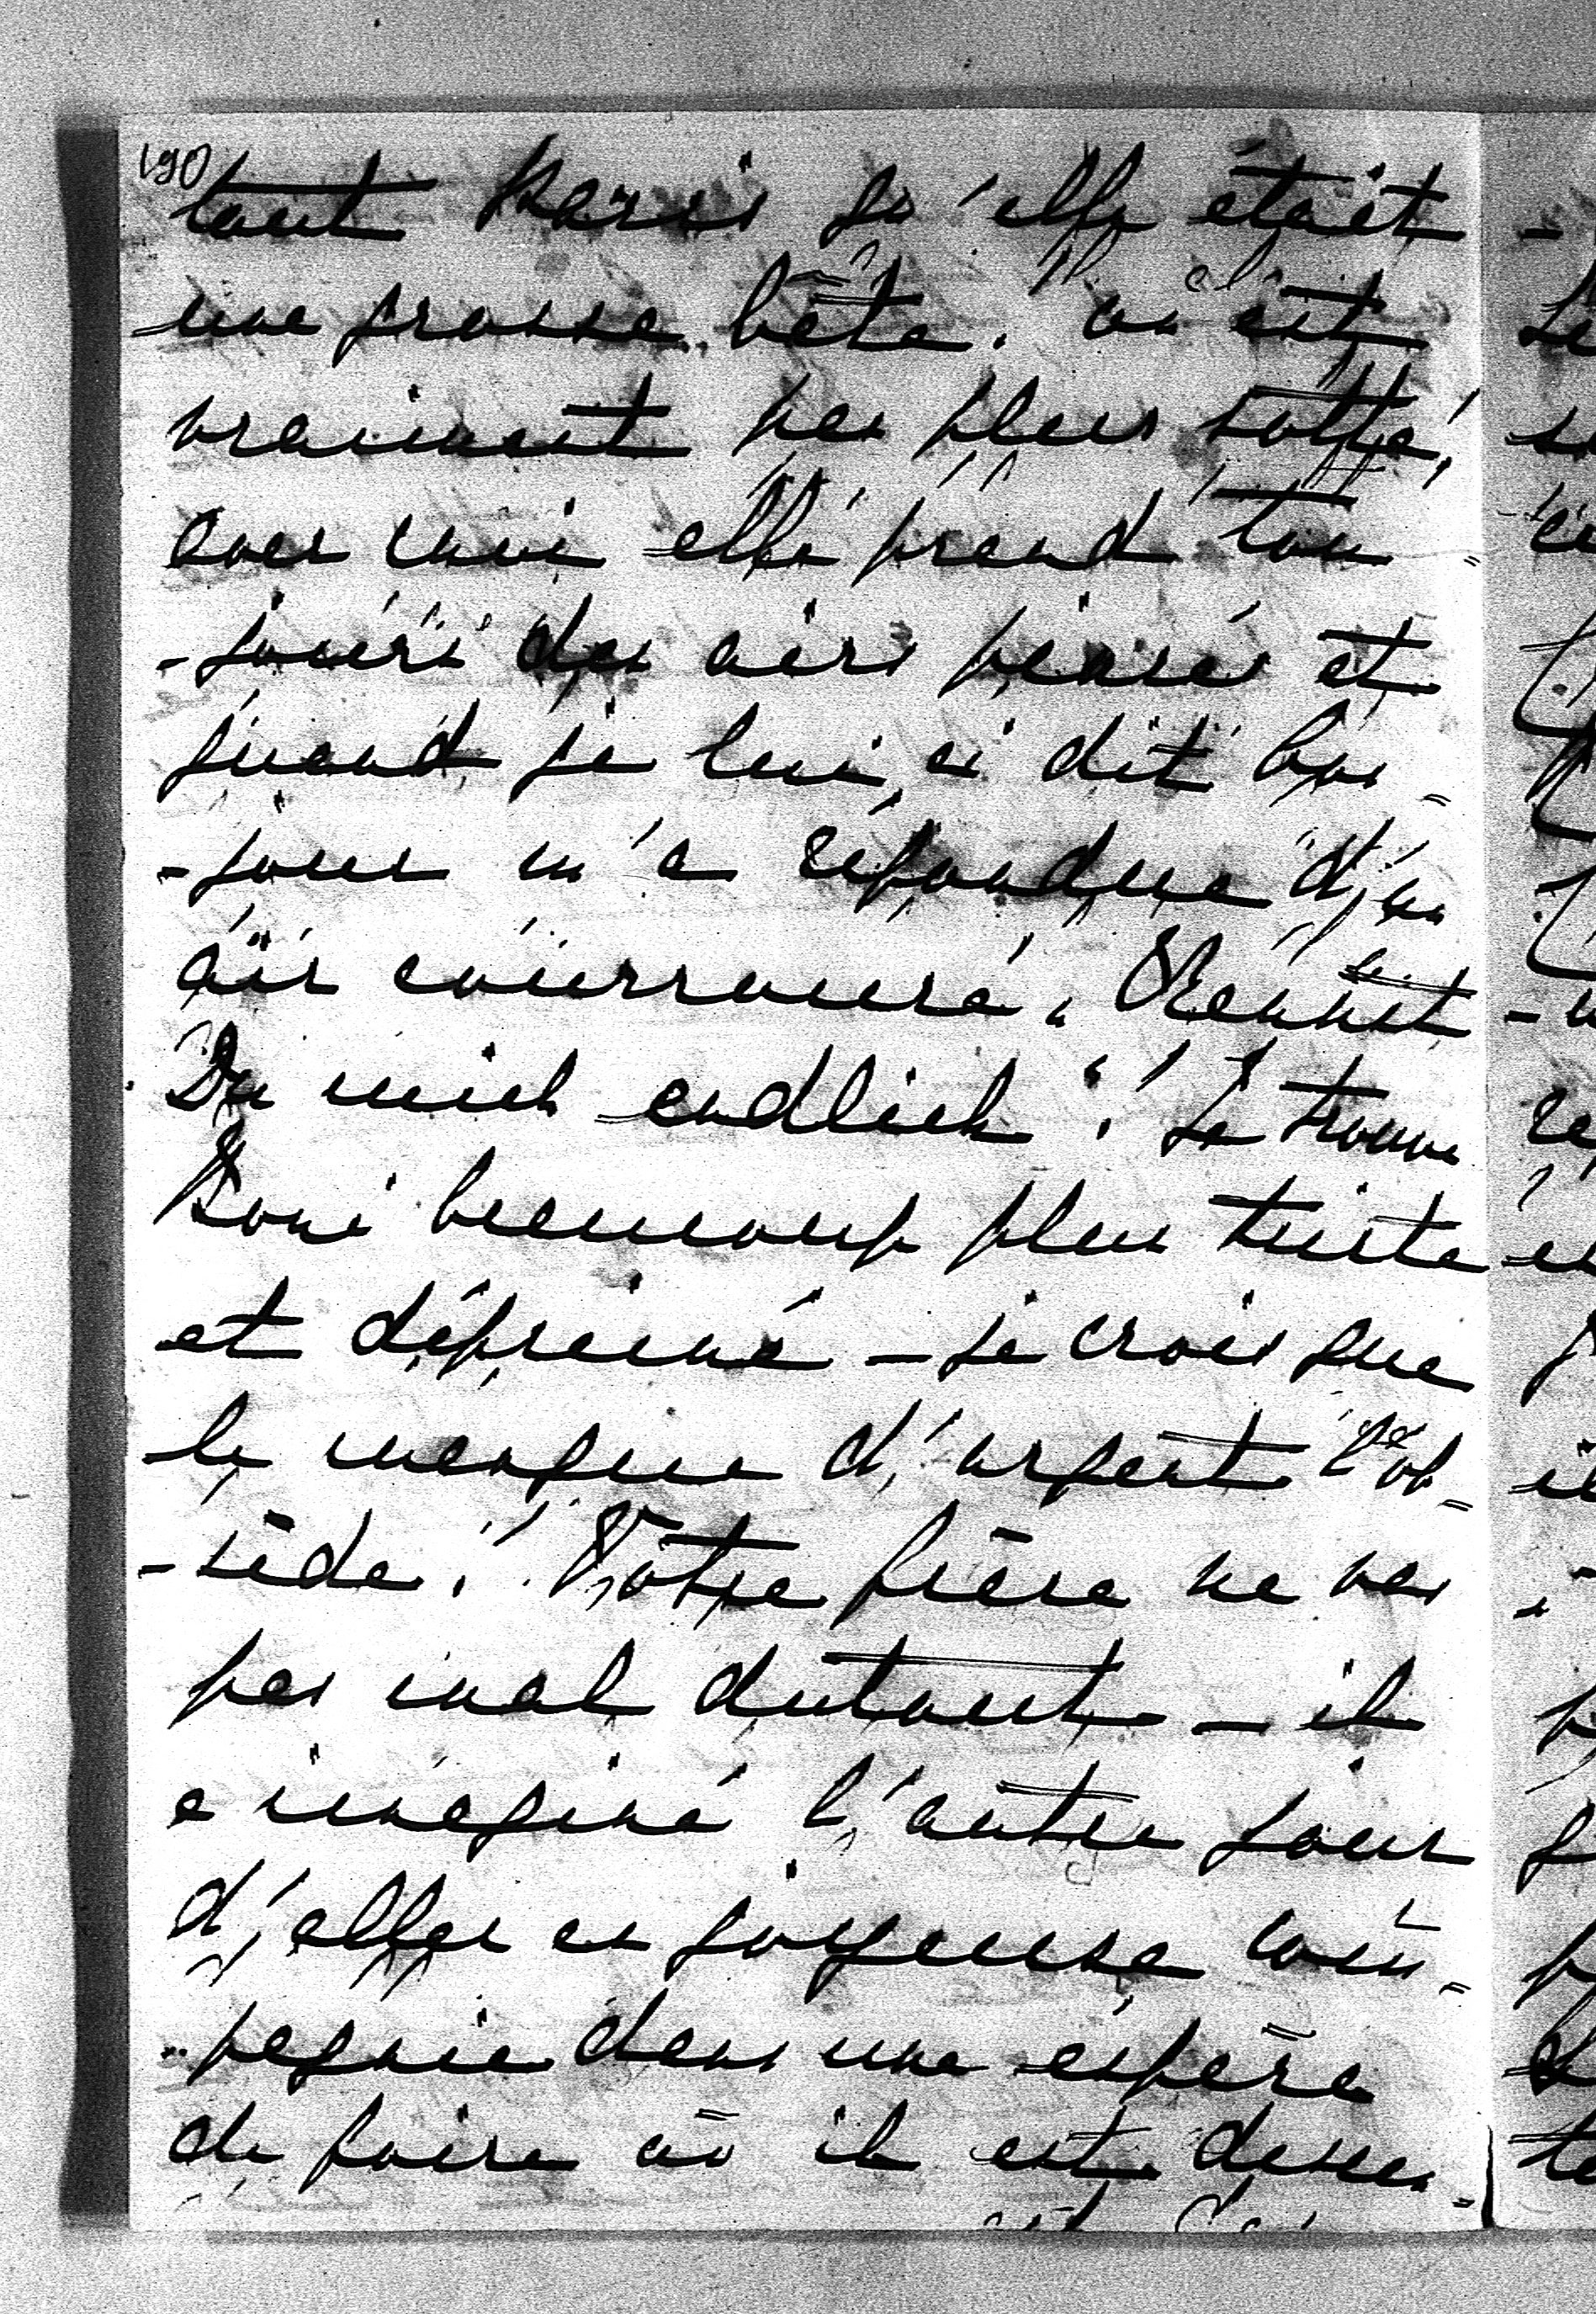 190
tout Paris qu'elle était
une grosse bête. on est
vraiment pas plus sotte!
avec moi elle prend tou=
-jours des airs pincés et
quand je lui ai dit bon=
-jour m'a répondue d'un
air courroucé "Kennst
Du mich endlich"! Je trouve
Boni beaucoup plus triste
et déprimé – je crois que
le manque d'argent l'ob=
-sède! Votre frère ne va
pas mal dutout – il
a imaginé l'autre jour
d'aller en joyeuse com=
pagnie dans une espèce
de foire où il est descen=